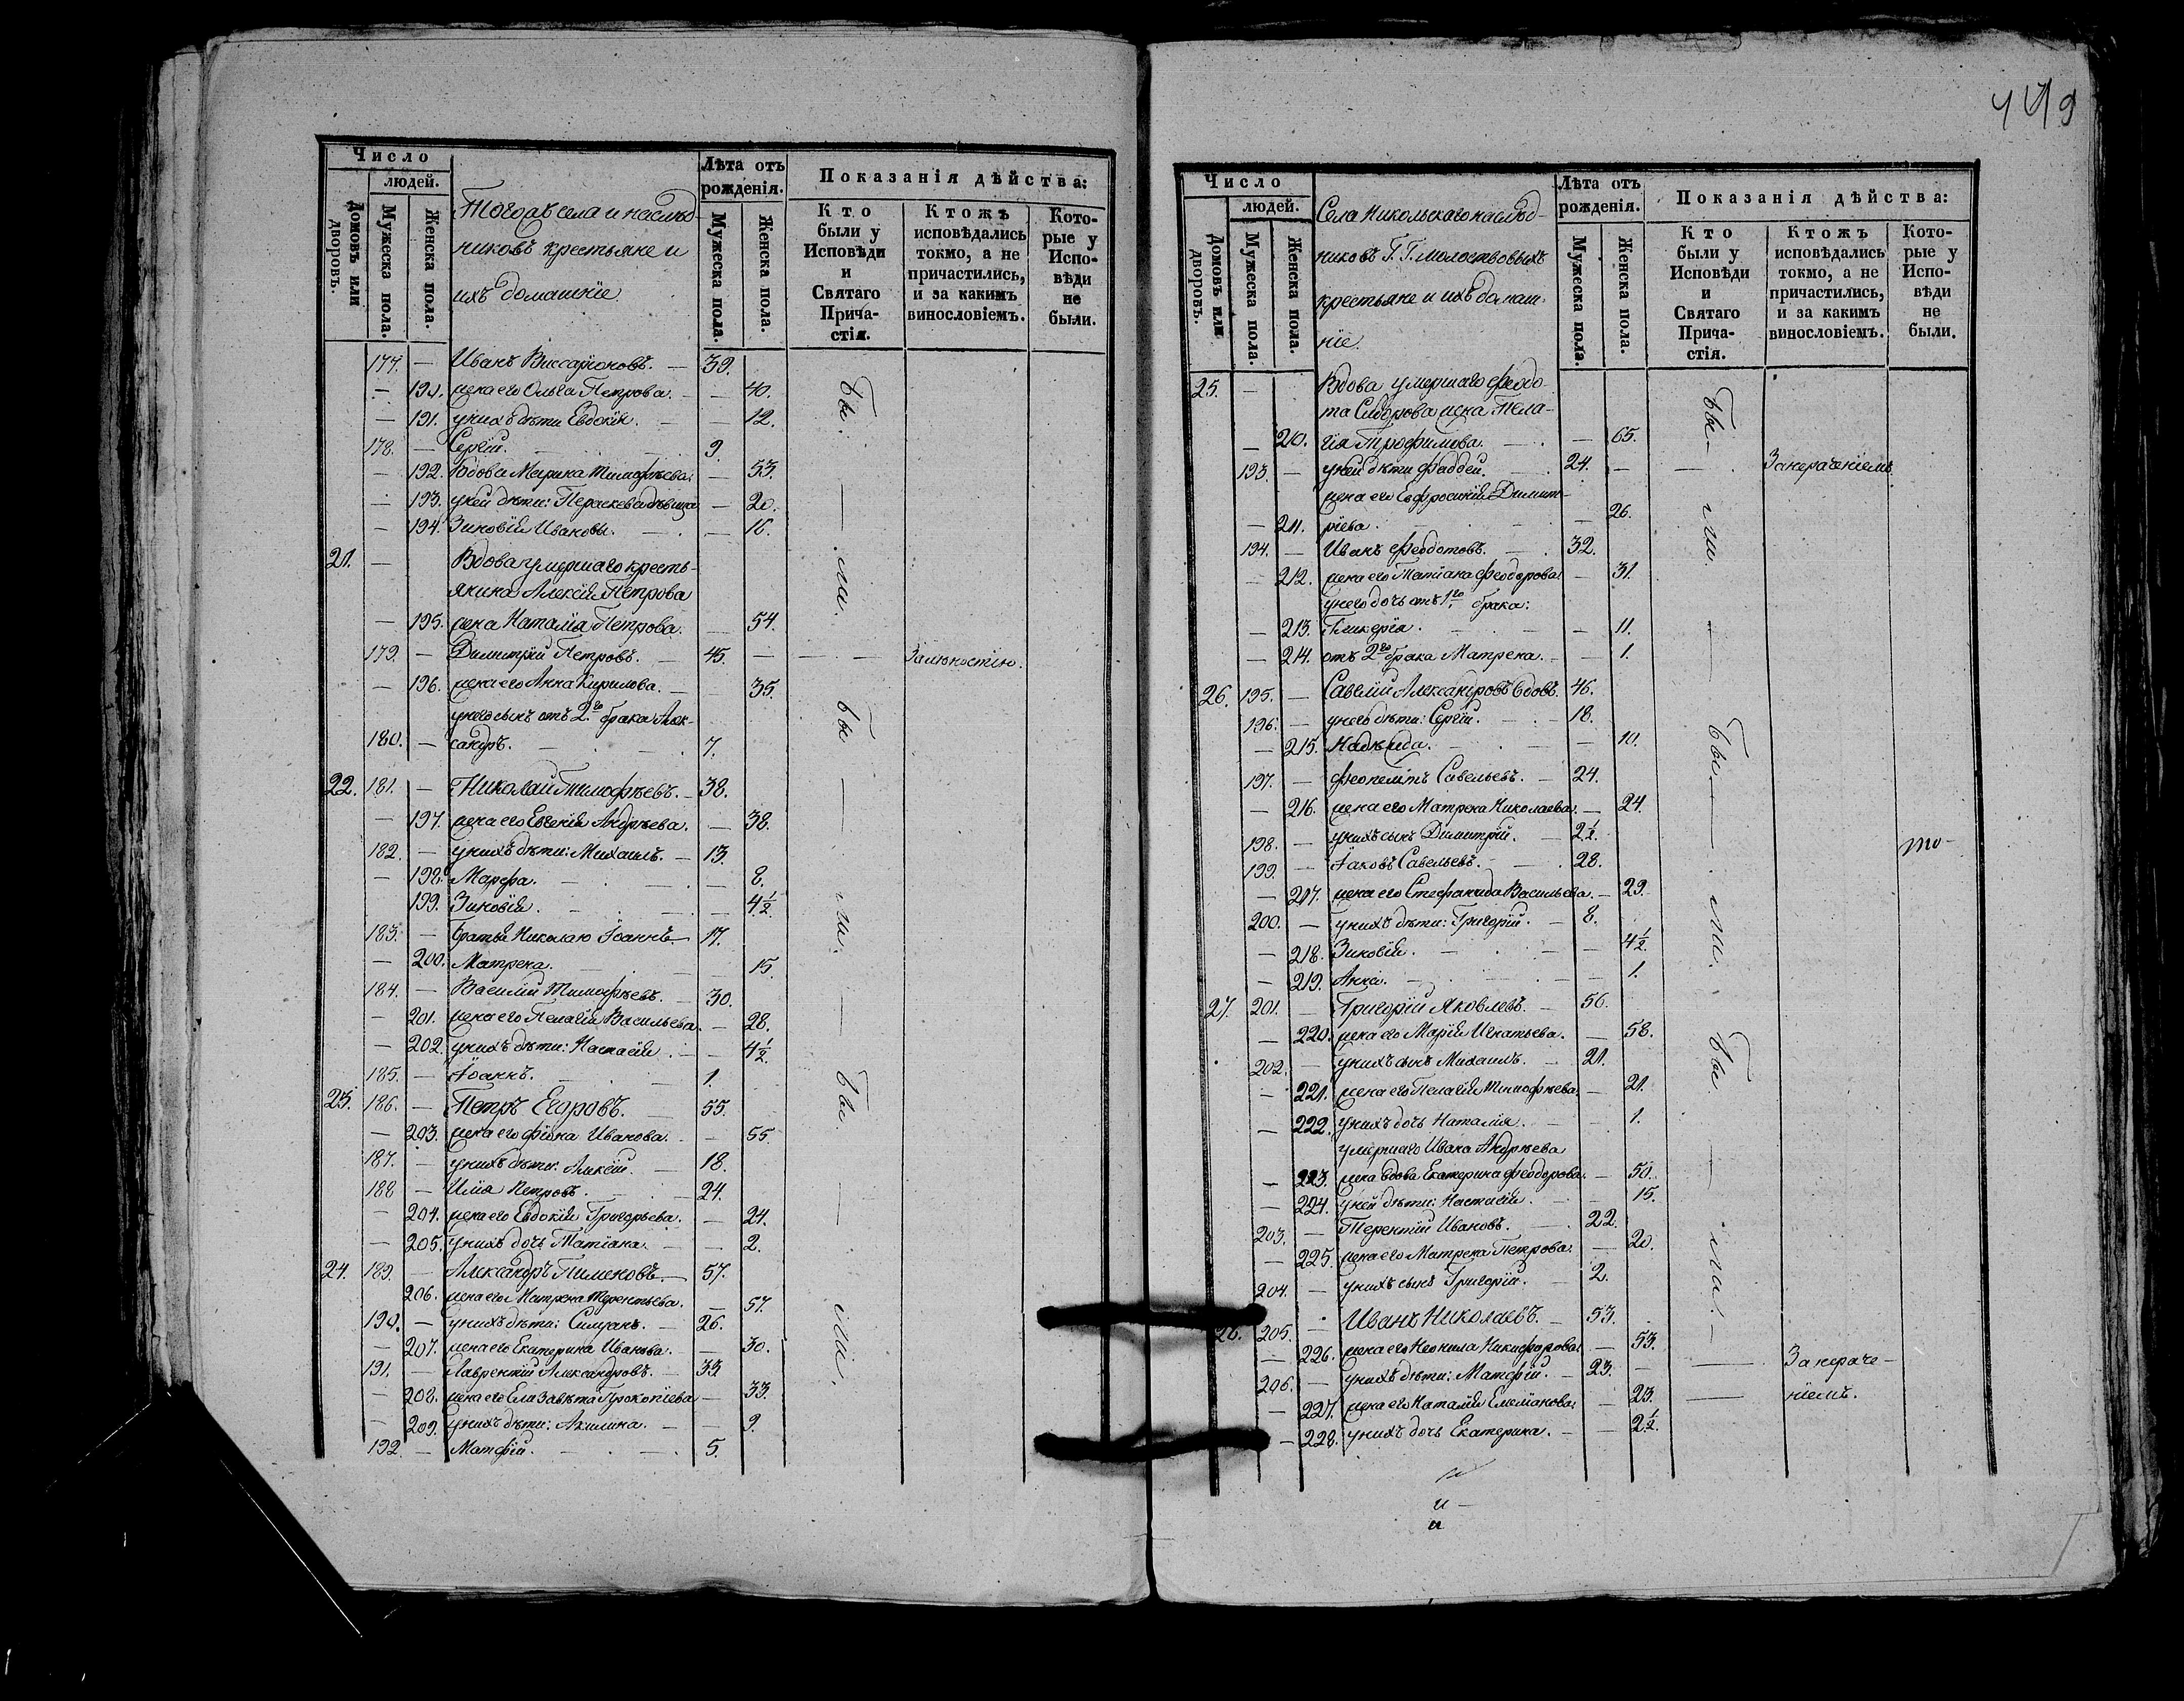 449
Число
людей.
Домовъ или дворовъ.
Мужеска пола.
Женска пола.
Тогожъ села и наслѣд-
никовъ крестьяне и
ихъ домашніе
Лѣта отъ рожденія.
Мужеска пола.
Женска пола.
Показанія дѣйства:
Кто были у Исповѣди и Святаго Прича-стія.
Ктожъ исповѣдались токмо, а не причастились, и за какимъ винословіемъ.
Кото-рые у Испо-вѣди не были.
177. — Иванъ Виссаріоновъ. — 39.
— 190. жена его Ольга Петрова. — 40.
— 191. у нихъ дѣти Евдокія. — 12.
178. — Сергій. 9.
— 192. Вдова Марина Тимофѣева. — 53.
— 193. у ней дѣти: Параскева дѣвица — 20.
— 194. Зиновія Ивановы. — 16.
21. — Вдова умершаго кресть-
янина Алексія Петрова
— 195. жена Наталія Петрова. — 54.
179. — Димитрій Петровъ. — 45. — — —
— 196. жена его Анна Кирилова. — 35.
у него сынъ отъ 2го брака Алек-
180. — сандръ. 7.
22. 181. — Николай Тимофѣевъ. — 38.
— 197. жена его Евгенія Андрѣева. — 38.
182. — у нихъ дѣти: Михаилъ. — 13.
— 198. Марфа. — 8.
199. Зиновія. — 4½.
183. — братья Николаю Іоаннъ — 17.
— 200. Матрена. — 15.
184. — Василій Тимофѣевъ. — 30.
— 201. жена его Пелагія Васильева. — 28.
— 202. у нихъ дѣти: Настасія. — 4½.
185. — Іоаннъ. 1.
23. 186. — Петръ Егоровъ. 55.
— 203. жена его Ѳіона Иванова. — 55.
187. — у нихъ дѣти: Алексій. — 18.
188 — Илія Петровъ. 24.
— 204. жена его Евдокія Григорьева. — 24.
— 205. у нихъ дочь Татіана. — 2.
24. 189. — Александръ Пименовъ. — 57.
206. жена его Матрена Терентьева. — 57.
190. — у нихъ дѣти: Силуанъ. — 26.
— 207. жена его Екатерина Иванова. — 30.
191. — Лаврентій Александровъ. — 33
— 208. жена его Елизавѣта Прокопіева — 33.
— 209. у нихъ дѣти: Акилина. — 9.
192. — Матфій. — 5.
бы — ли.
бы — ли.
бы — ли.
Число
людей.
Домовъ или дворовъ.
Мужеска пола.
Женска пола.
Села Никольскаго наслѣд-
никовъ Г. Г. Молоствовыхъ
крестьяне и ихъ домаш-
ніе.
Лѣта отъ рожденія.
Мужеска пола.
Женска пола.
Показанія дѣйства:
Кто были у Исповѣди и Святаго Прича-стія.
Ктожъ исповѣдались токмо, а не причастились, и за какимъ винословіемъ.
Кото-рые у Испо-вѣди не были.
25. — Вдова умершаго Ѳеодо-
та Сидорова жена Пела-
— 210. гія Трофимова. — 65.
193. — у ней дѣти Фаддей. 24. — — За нераченіемъ
жена его Евфросинія Димит-
— 211. ріева. — 26.
194. — Иванъ Ѳеодотовъ. — 32.
— 212. жена его Татіана Ѳеодорова. — 31.
у него дочь отъ 1го брака:
— 213. Гликерія. — 11.
— 214. отъ 2го брака Матрена. — 1.
26. 195. — Савелій Александровъ вдовъ. 46.
196. — у него дѣти: Сергій. — 18.
— 215. Надежда. — 10.
197. — Ѳеопемптъ Савельевъ. — 24.
— 216. жена его Матрена Николаева. — 24.
198. — у нихъ сынъ Димитрій. — 2½.
199. — Іаковъ Савельевъ. — 28.
— 217. жена его Стефанида Васильева. — 29.
200. — у нихъ дѣти: Григорій. — 8.
— 218. Зиновія. — 4½.
— 219. Анна. — 1.
27. 201. — Григорій Яковлевъ. — 56.
— 220. жена его Марія Игнатьева. — 58.
202. — у нихъ сынъ Михаилъ. — 21.
— 221. жена его Пелагія Тимофѣева. — 21.
— 222. у нихъ дочь Наталія. — 1.
умершаго Ивана Андрѣева
— 223. жена вдова Екатерина Ѳеодорова. — 50.
— 224. у ней дѣти: Настасія. — 15.
203. — Терентій Ивановъ. — 22.
— 225. жена его Матрена Петрова. — 20.
204. — у нихъ сынъ Григорій. — 2.
28. 205. — Иванъ Николаевъ. — 53.
— 226. жена его Неонила Никифорова. — 53.
206. — у нихъ дѣти: Матфій. — 23. — За нераче-
— 227. жена его Наталія Емеліанова. — 23. — ніемъ.
— 228. у нихъ дочь Екатерина. — 2½.
бы — ли.
бы — ли.
бы — ли.
то-